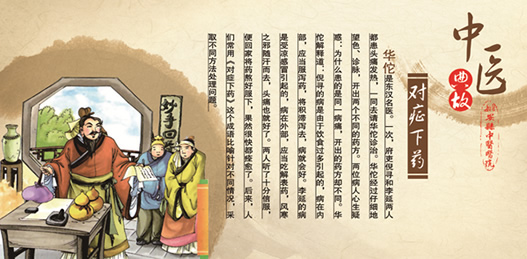 中医
典故
对症下药
华佗是东汉名医。一次，府吏倪寻和李延两人
都患头痛发热，一同去请华佗诊治。华佗经过仔细地
望色、诊脉，开出两个不同的药方。两位病人心生疑
惑：为什么患的是同一病痛，开出的药方却不同。华
佗解释道：倪寻的病是由于饮食过多引起的，病在内
部，应当服泻药，将积滞泻去，病就会好。李延的病
是受凉感冒引起的，病在外部，应当吃解表药，风寒
之邪随汗而去，头痛也就好了。两人听了十分信服，
便回家将药熬好服下，果然很快都痊愈了。后来，人
们常用《对症下药》这个成语比喻针对不同情况，采
取不同方法处理问题。
妙手回